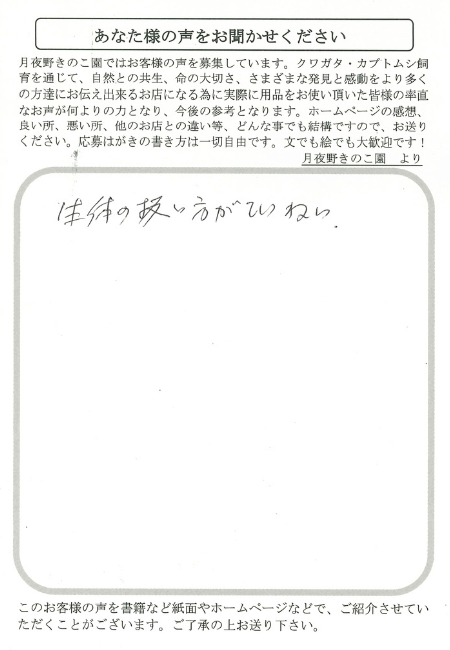 あなた様の声をお聞かせください
月夜野きのこ園ではお客様の声を募集しています。クワガタ・カブトムシ飼
育を通じて、自然との共生、命の大切さ、さまざまな発見と感動をより多く
の方達にお伝え出来るお店になる為に実際に用品をお使い頂いた皆様の率直
なお声が何よりの力となり、今後の参考となります。ホームページの感想、
良い所、悪い所、他のお店との違い等、どんな事でも結構ですので、お送り
ください。応募はがきの書き方は一切自由です。文でも絵でも大歓迎です！
月夜野きのこ園　より
生体の扱い方がていねい.
このお客様の声を書籍など紙面やホームページなどで、ご紹介させてい
ただくことがございます。ご了承の上お送り下さい。